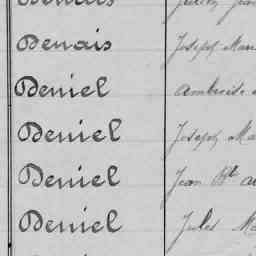 Denais Joseph Mar
Deniel Ambroise
Deniel Joseph Ma
Deniel Jean Bte
Deniel Jules Ma